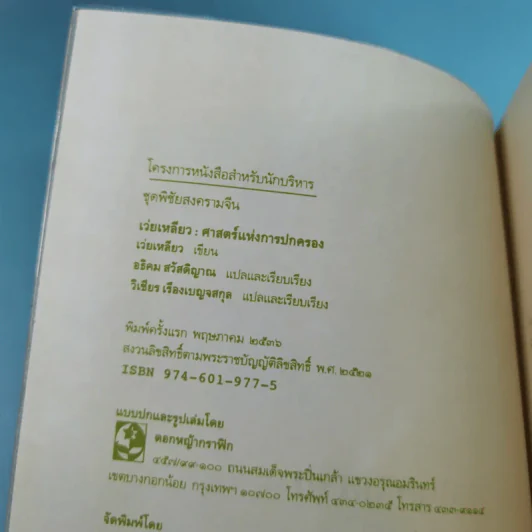 โครงการหนังสือสำหรับนักบริหาร
ชุดพิชัยสงครามจีน
เว่ยเหลียว : ศาสตร์แห่งการปกครอง
เว่ยเหลียว เขียน
อธิคม สวัสดิญาณ แปลและเรียบเรียง
วิเชียร เรืองเบญจสกุล แปลและเรียบเรียง
พิมพ์ครั้งแรก พฤษภาคม ๒๕๓๖
สงวนลิขสิทธิ์ตามพระราชบัญญัติลิขสิทธิ์ พ.ศ. ๒๕๒๑
ISBN 974-601-977-5
แบบปกและรูปเล่มโดย
ดอกหญ้ากราฟิก
๔๕๗/๙๙-๑๐๐ ถนนสมเด็จพระปิ่นเกล้า แขวงอรุณอมรินทร์
เขตบางกอกน้อย กรุงเทพฯ ๑๐๗๐๐ โทรศัพท์ ๔๓๔-๐๒๓๕ โทรสาร
จัดพิมพ์โดย